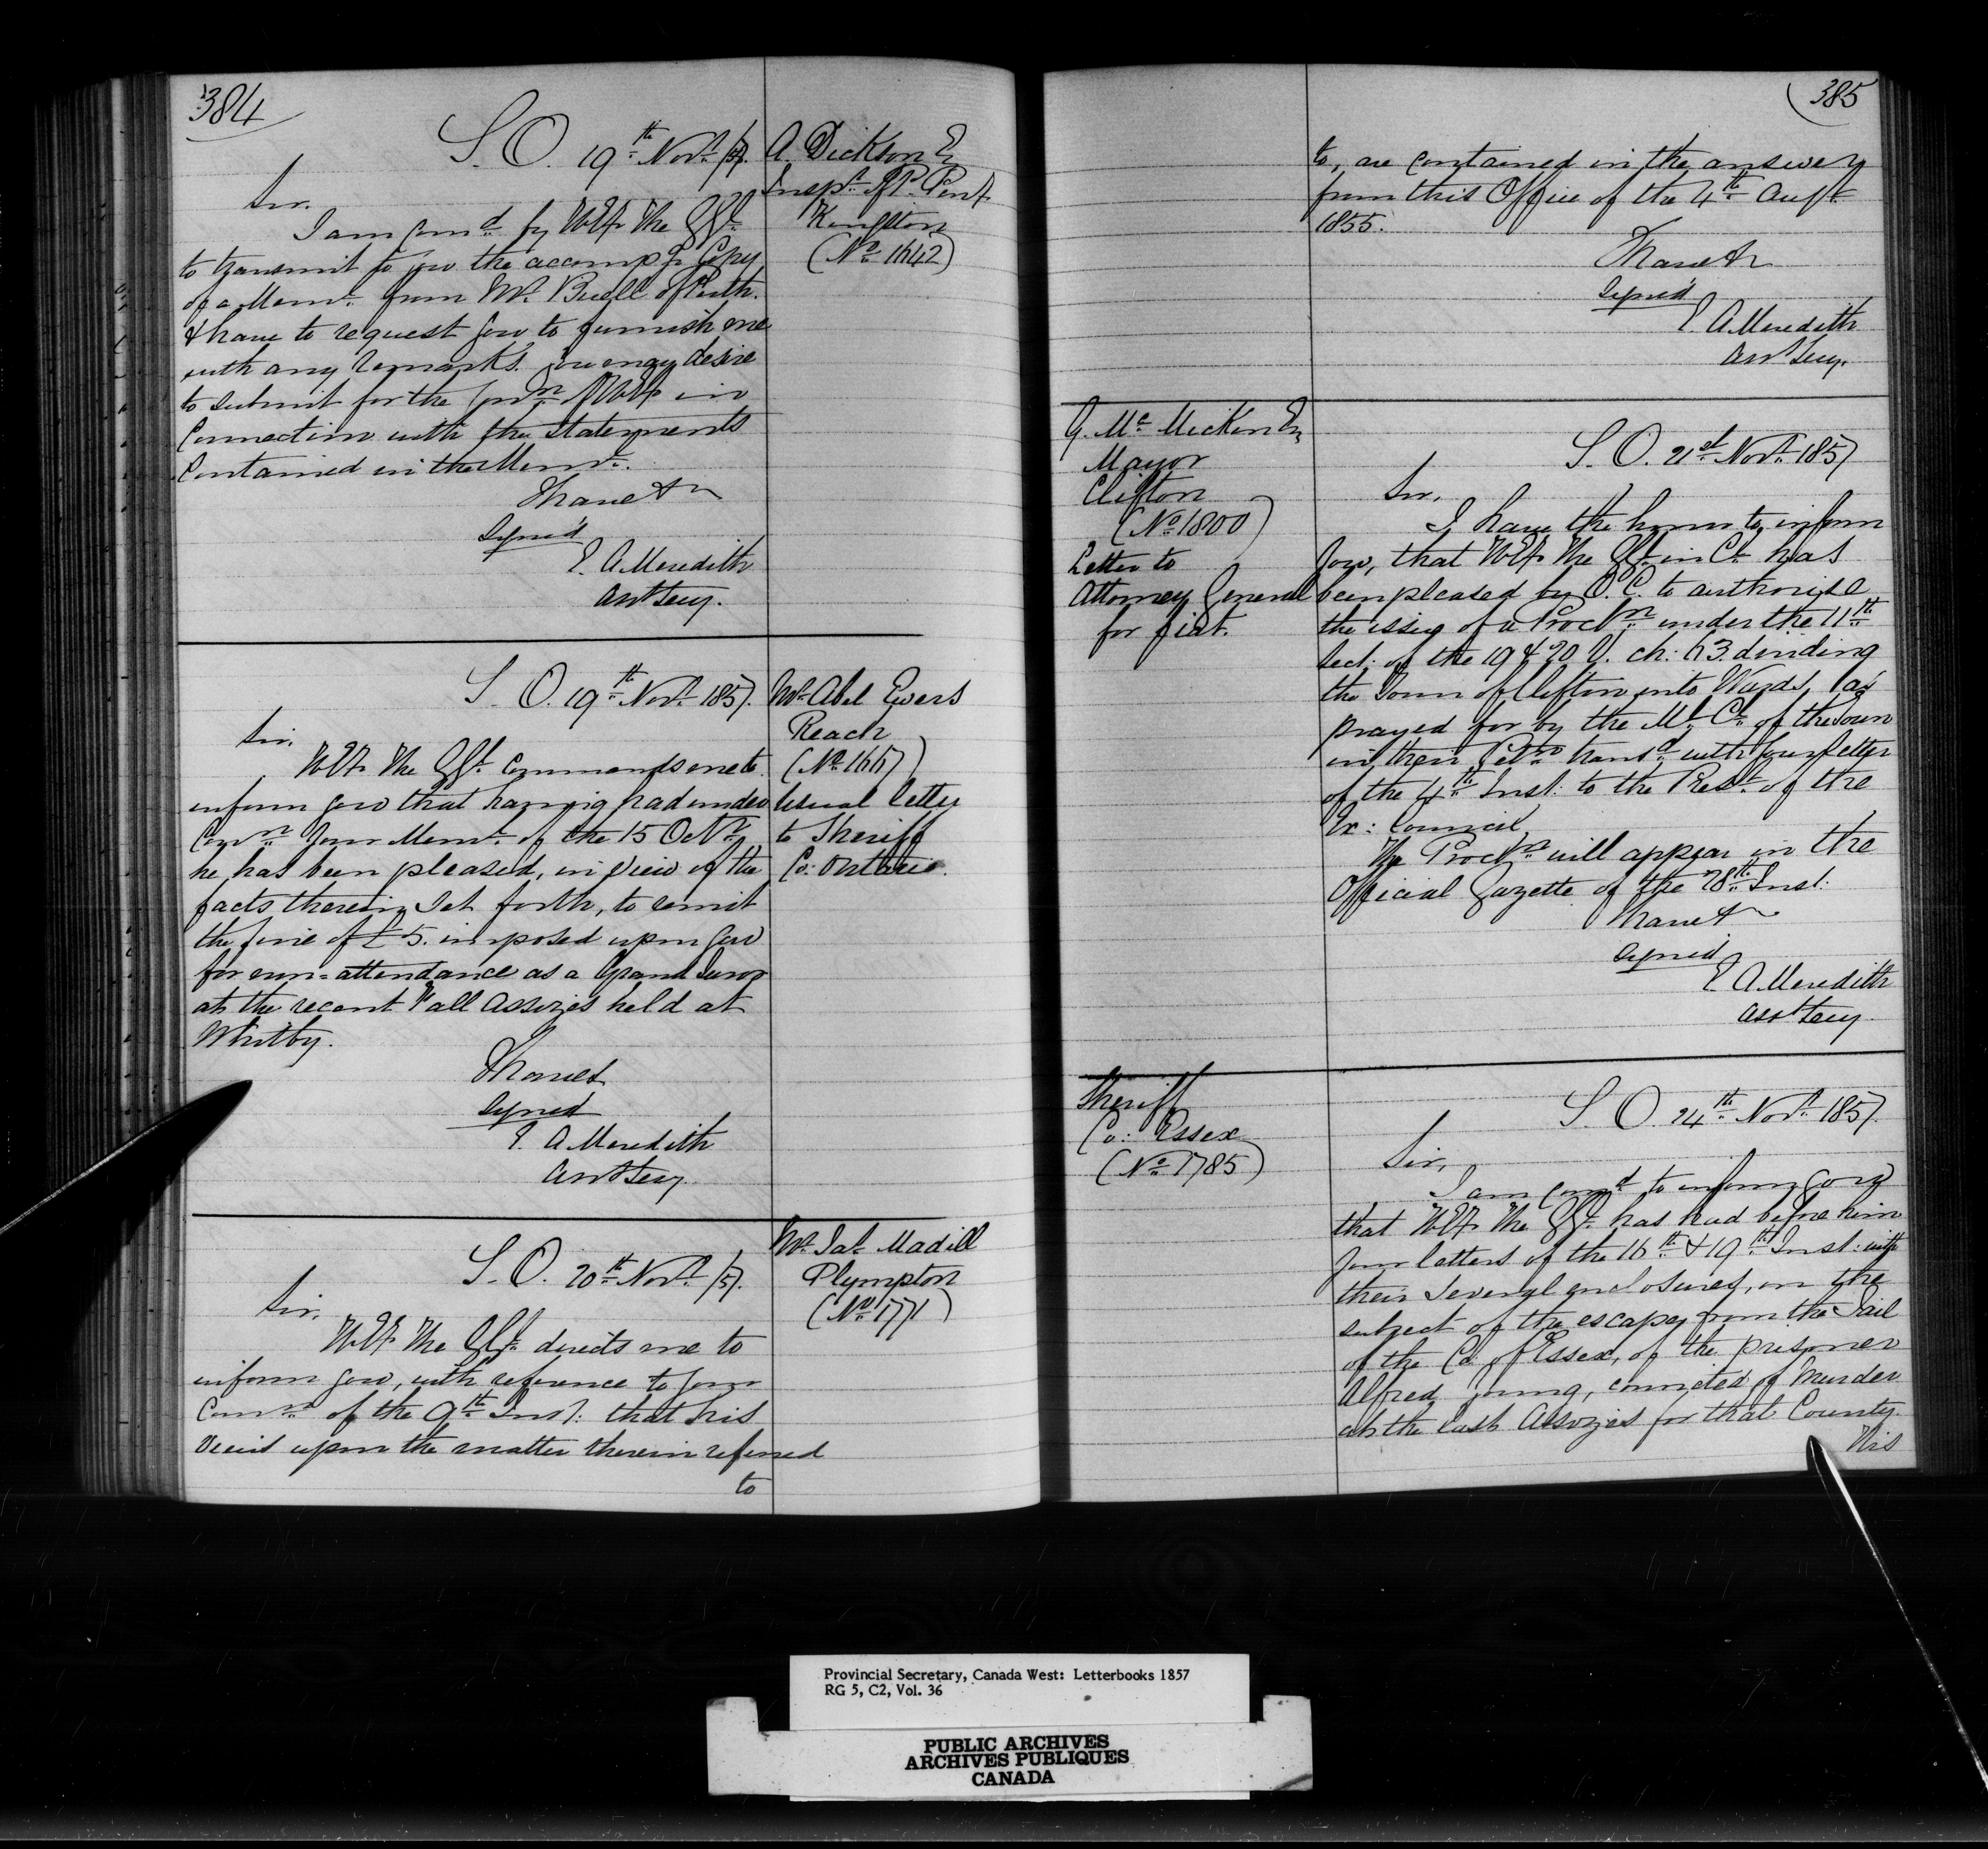 384
S. O. 19th Novr /57.
A. Dickson Eq
Inspr. of P. Pent
Kingston
(No 1642)
Sir.
I am comd. by H E the G G
to transmit to you the accompg Copy
of a Memo. from Mr. Buell of Perth.
& have to request you to furnish me
with any remarks you may desire
to submit for the Conn of H E in
Connection with the Statements
Contained in the Meml.
I have &c
Signed
E. A Meredith
Asst Secy.
S. O. 19th Novr. 1857.
Mr. Abel Ewers
Reach
(No 1667)
Usual letter
to Sheriff
Co: Ontario.
Sir.
H E the G G commands me to
inform you that having had under
Conn your Meml. of the 15 Octr.
he has been pleased, in view of the
facts therein set forth, to remit
the fine of £5. imposed upon you
for nun=attendance as a Grand Juror
at the recent Fall Assizes held at
Whitby.
I have &
Signed
E. A Meredith
Asst Secy.
S. O. 20th Novr /57.
Mr. Jas. Madill
Plympton
(No 1771)
Sir.
H E the G G directs me to
inform you, with reference to your
Comn. of the 9th Inst: that his
views upon the matter therein referred
to
385
to, are contained in the answer
from this Office of the 4th Augt.
1855.
I have &c
Signed
E A Meredith
Asst Secy.
G. Mc Micken Eq
Mayor
Clifton
(No 1800)
Letter to
Attorney General
for fiat.
S. O. 21st Novr. 1857
Sir,
I have the honor to inform
you, that H E the G G in Cl. has
been pleased by O. C. to authorise
the issue of a Procln. under the 11th
Sect: of the 19 & 20 V. ch: 63. dividing
the Town of Clifton into Wards, (as
prayed for by the Ml. Cl. of the Town
in their Petn. transd. with your letter
of the 4th Inst: to the Prest. of the
Ex: Council
The Procln. will appear in the
Official Gazette of the 28th Inst:
I have &c
Signed
E. A Meredith
Asst Secy.
Sheriff
Co: Essex
(No 1785)
S. O. 24th Novr 1857.
Sir,
I am comd. to inform you
that H E the G G. has had before him
your letters of the 16th & 19th Inst: with
their several enclosures, on the
subject of the escape from the Jail
of the Co. of Essex, of the prisoner
Alfred Young, convicted of Murder
at the last Assizes for that County.
His
Provincial Secretary, Canada West: Letterbooks 1857
RG 5, C2, Vol. 36
PUBLIC ARCHIVES
ARCHIVES PUBLIQUES
CANADA